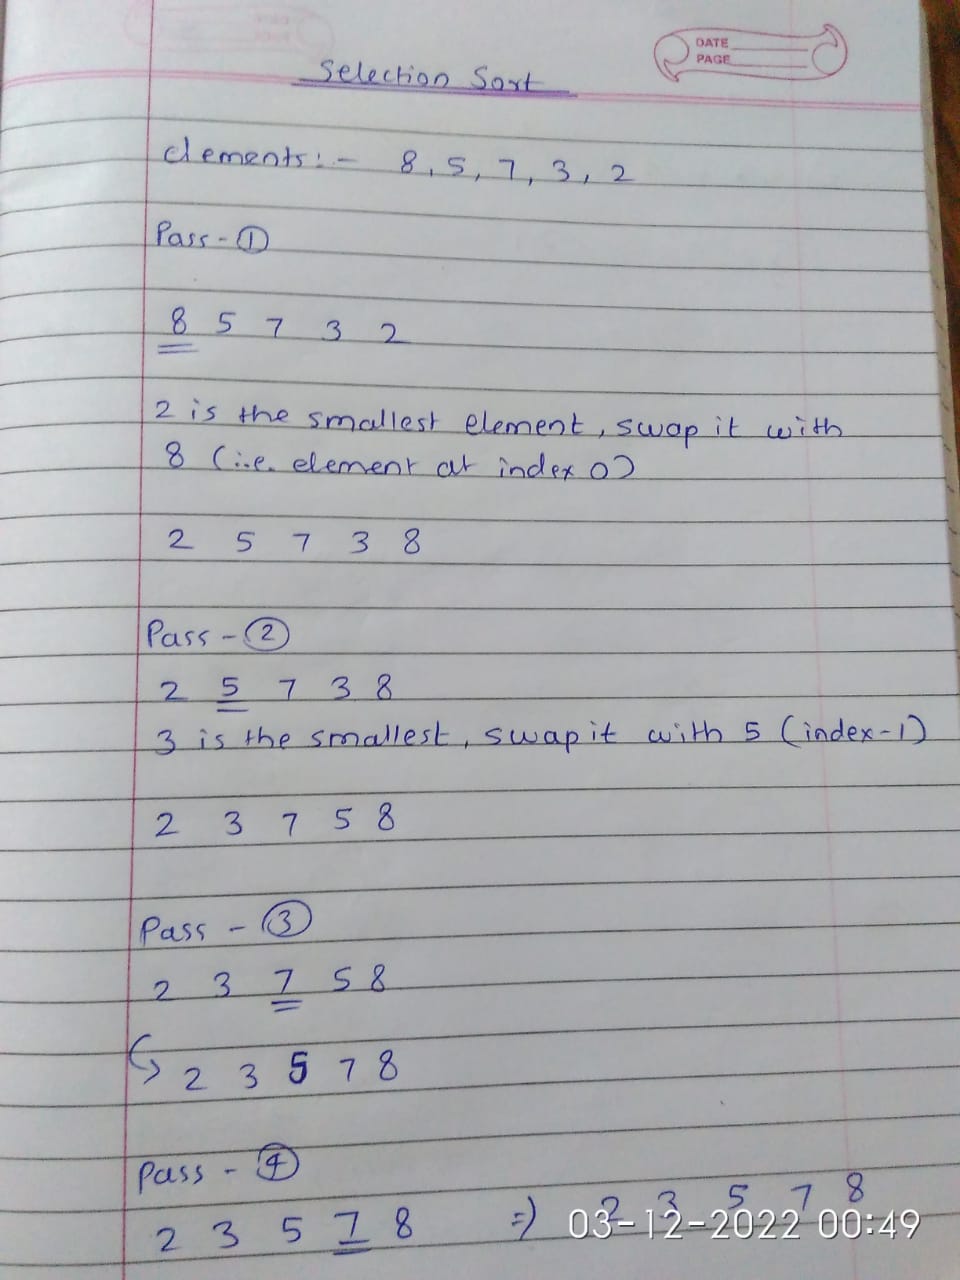 DATE
PAGE
Selection Sort
elements:- 8, 5, 7, 3, 2
Pass-①
8 5 7 3 2
2 is the smallest element, swap it with
8 (i.e. element at index 0)
2 5 7 3 8
Pass-②
2 5 7 3 8
3 is the smallest, swap it with 5 (index-1)
2 3 7 5 8
Pass-③
2 3 7 5 8
↪ 2 3 5 7 8
Pass-④
2 3 5 7 8 ⇒ 2 3 5 7 8
03-12-2022 00:49